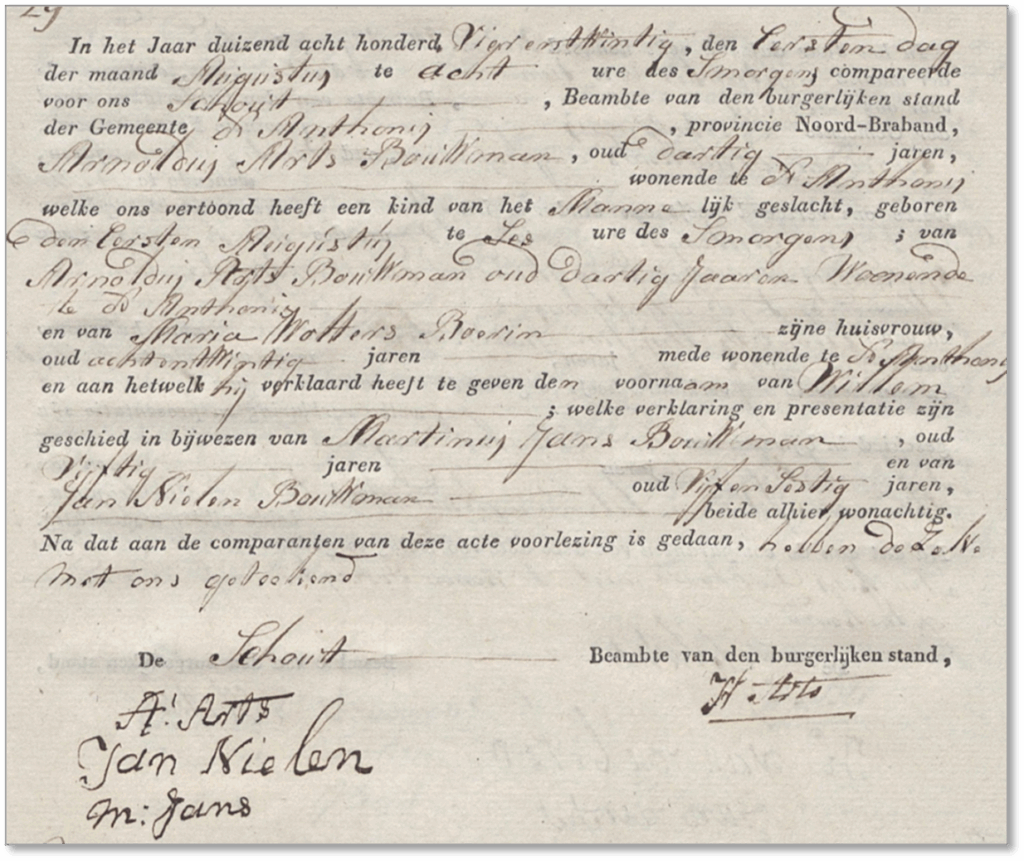 29
In het Jaar duizend acht honderd Vier en twintig, den Eersten dag
der maand Augustus te acht ure des Smorgens compareerde
voor ons Schout, Beambte van den burgerlijken stand
der Gemeente St Anthonij, provincie Noord-Braband,
Arnoldus Arts Bouwkman, oud dartig jaren,
wonende te St Anthonij
welke ons vertoond heeft een kind van het Mannelijk geslacht, geboren
den Eersten Augustus te Ses ure des Smorgens ; van
Arnoldus Arts Bouwkman oud dartig Jaaren Woonende
te St Anthonij
en van Maria Wolters Boerin zijne huisvrouw,
oud achtentwintig jaren mede wonende te St Anthonij
en aan hetwelk hij verklaard heeft te geven den voornaam van Willem
; welke verklaring en presentatie zijn
geschied in bijwezen van Martinus Jans Bouwkman, oud
Vijftig jaren en van
Jan Nielen Bouwkman oud Vijf en Sestig jaren,
beide alhier wonachtig.
Na dat aan de comparanten van deze acte voorlezing is gedaan, hebben de Zelve
met ons geteekend
De Schout Beambte van den burgerlijken stand,
H Arts
A: Arts
Jan Nielen
M: Jans